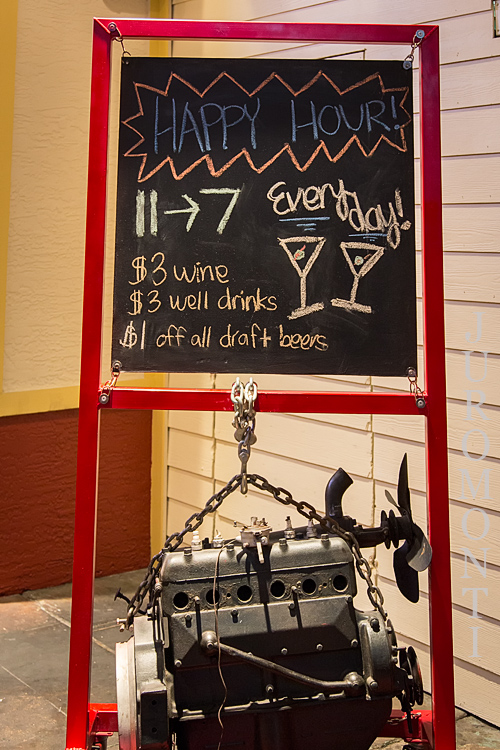 HAPPY HOUR!
11→7
Every day!
$3 wine
$3 well drinks
$1 off all draft beers
JUROMONTI